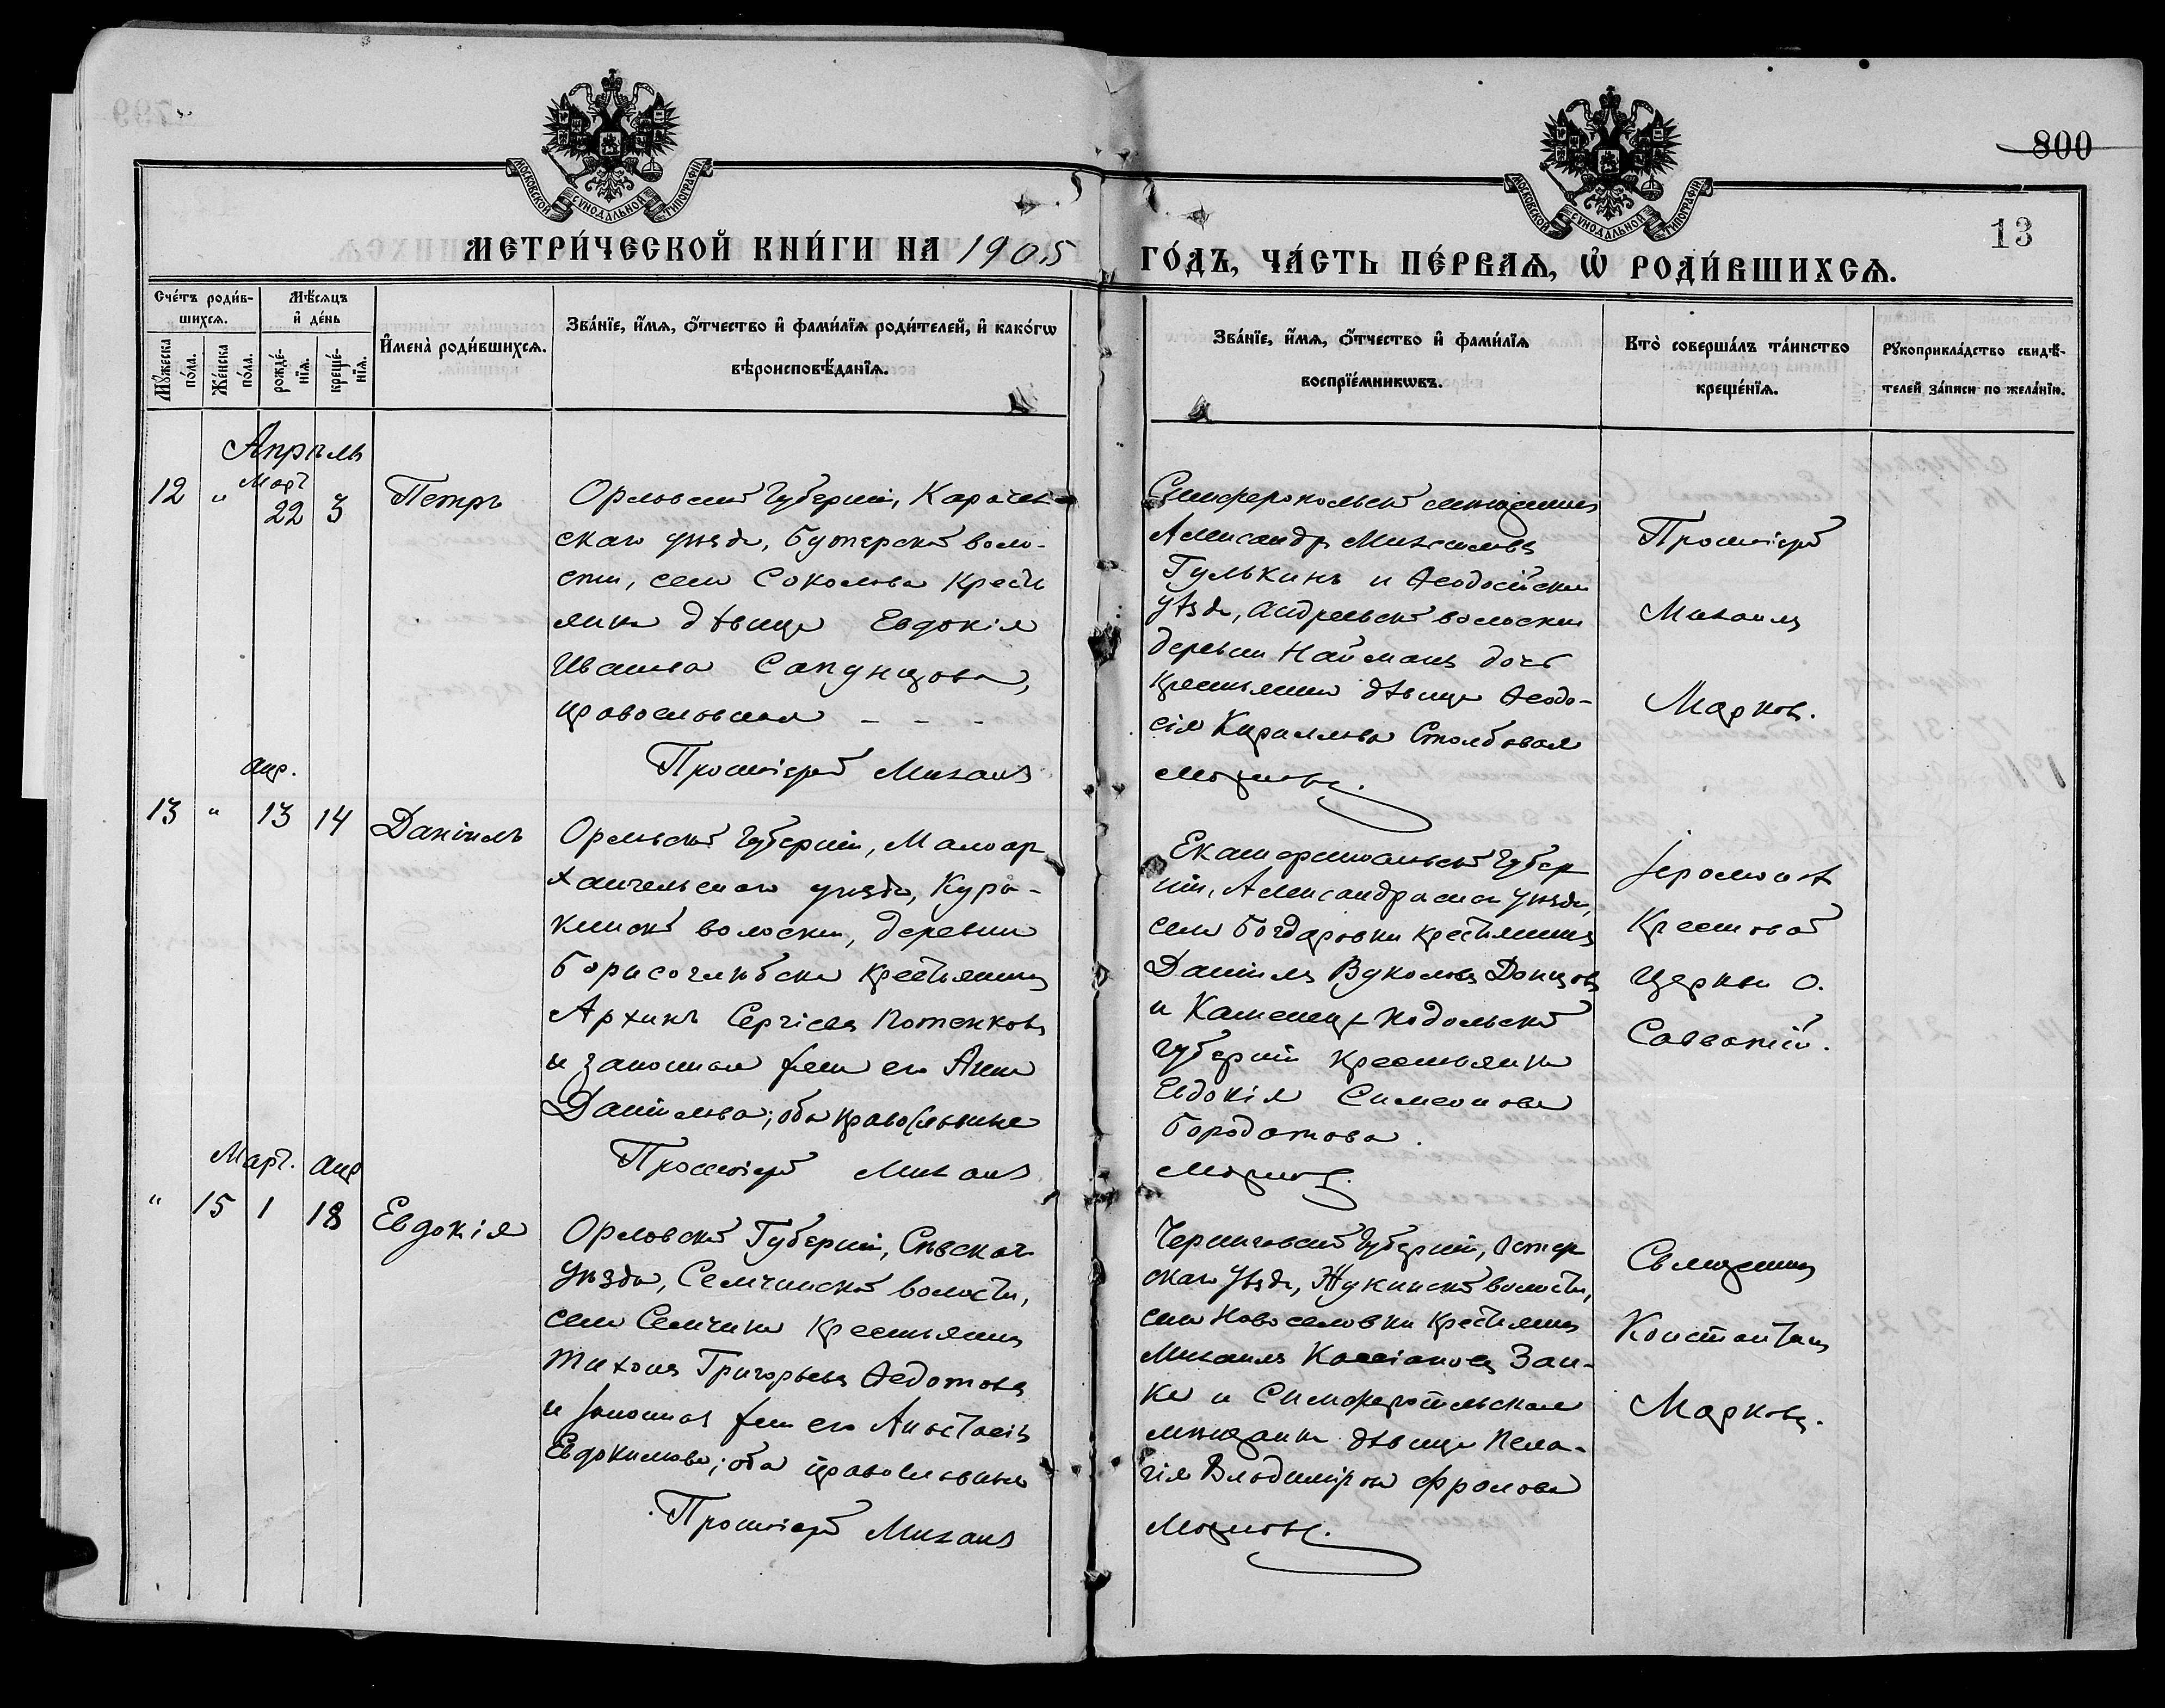 800
13
МОСКОВСКОЙ СѴНОДАЛЬНОЙ ТИПОГРАФІИ
МОСКОВСКОЙ СѴНОДАЛЬНОЙ ТИПОГРАФІИ
МЕТРИ́ЧЕСКОЙ КНИ́ГИ НА 1905
ГО́ДЪ, ЧА́СТЬ ПЕ́РВАѦ, Ѡ҆ РОДИ́ВШИХСѦ.
Сче́тъ роди́в-
шихсѧ.
Мѣ́сѧцъ
и҆ де́нь
Мꙋ́жеска
по́ла.
Же́нска
по́ла.
рожде́-
нїѧ.
креще́-
нїѧ.
И҆мена̀ роди́вшихсѧ.
Зва́нїе, и҆́мѧ, ѻ҆́тчество и҆ фами́лїѧ роди́телей, и҆ како́гѡ
вѣроисповѣ́данїѧ.
Зва́нїе, и҆́мѧ, ѻ҆́тчество и҆ фами́лїѧ
воспрїе́мникѡвъ.
Кто̀ соверша́лъ та́инство
креще́нїѧ.
Рꙋкоприкла́дство свидѣ́-
телей за́писи по жела́нїю.
Апрѣль
Март
12 " 22 3
Петръ
Орловской Губерніи, Карачев
скаго уѣзда, Бутерской воло-
сти, села Соколова Кресть
янка дѣвица Евдокія
Иванова Сапунцова,
православная - - -
Протоіерей Михаилъ
Симферопольскій мѣщанинъ
Александръ Михаиловъ
Гулькинъ и Ѳеодосійскаго
уѣзда, Андреевской волости
деревни Найманъ дочь
крестьянина дѣвица Ѳеодо-
сія Кириллова Столбовая
Марковъ.
Протоіерей
Михаилъ
Марковъ.
апр.
13 " 13 14
Даніилъ
Орловской Губерніи, Малоар
хангельскаго уѣзда, Кура-
кинской волости, деревни
Борисоглѣбской крестьянинъ
Архипъ Сергіевъ Потенковъ
и законная жена его Анна
Даніилова; оба православные
Протоіерей Михаилъ
Екатеринославской Губер
ніи, Александровскаго уѣзда,
села Богдаровки крестьянинъ
Даніилъ Вуколовъ Донцовъ
и Каменец-Подольской
губерніи крестьянка
Евдокія Симеонова
Бородатова.
Марковъ.
Іеромонах
Крестовой
церкви о.
Савватій.
Март. апр
" 15 1 18
Евдокія
Орловской Губерніи, Сѣвскаго
уѣзда, Семчинской волости,
села Семчина крестьянинъ
Тихонъ Григорьевъ Ѳедотовъ
и законная жена его Анастасія
Евдокимова; оба православные
Протоіерей Михаилъ
Черниговской Губерніи, Остер
скаго уѣзда, Жукинской волости,
села Новоселовки крестьянинъ
Михаилъ Кассіановъ Заи-
ка и Симферопольская
мѣщанка дѣвица Пела-
гія Владимірова Фролова
Марковъ.
Священникъ
Константинъ
Марковъ.